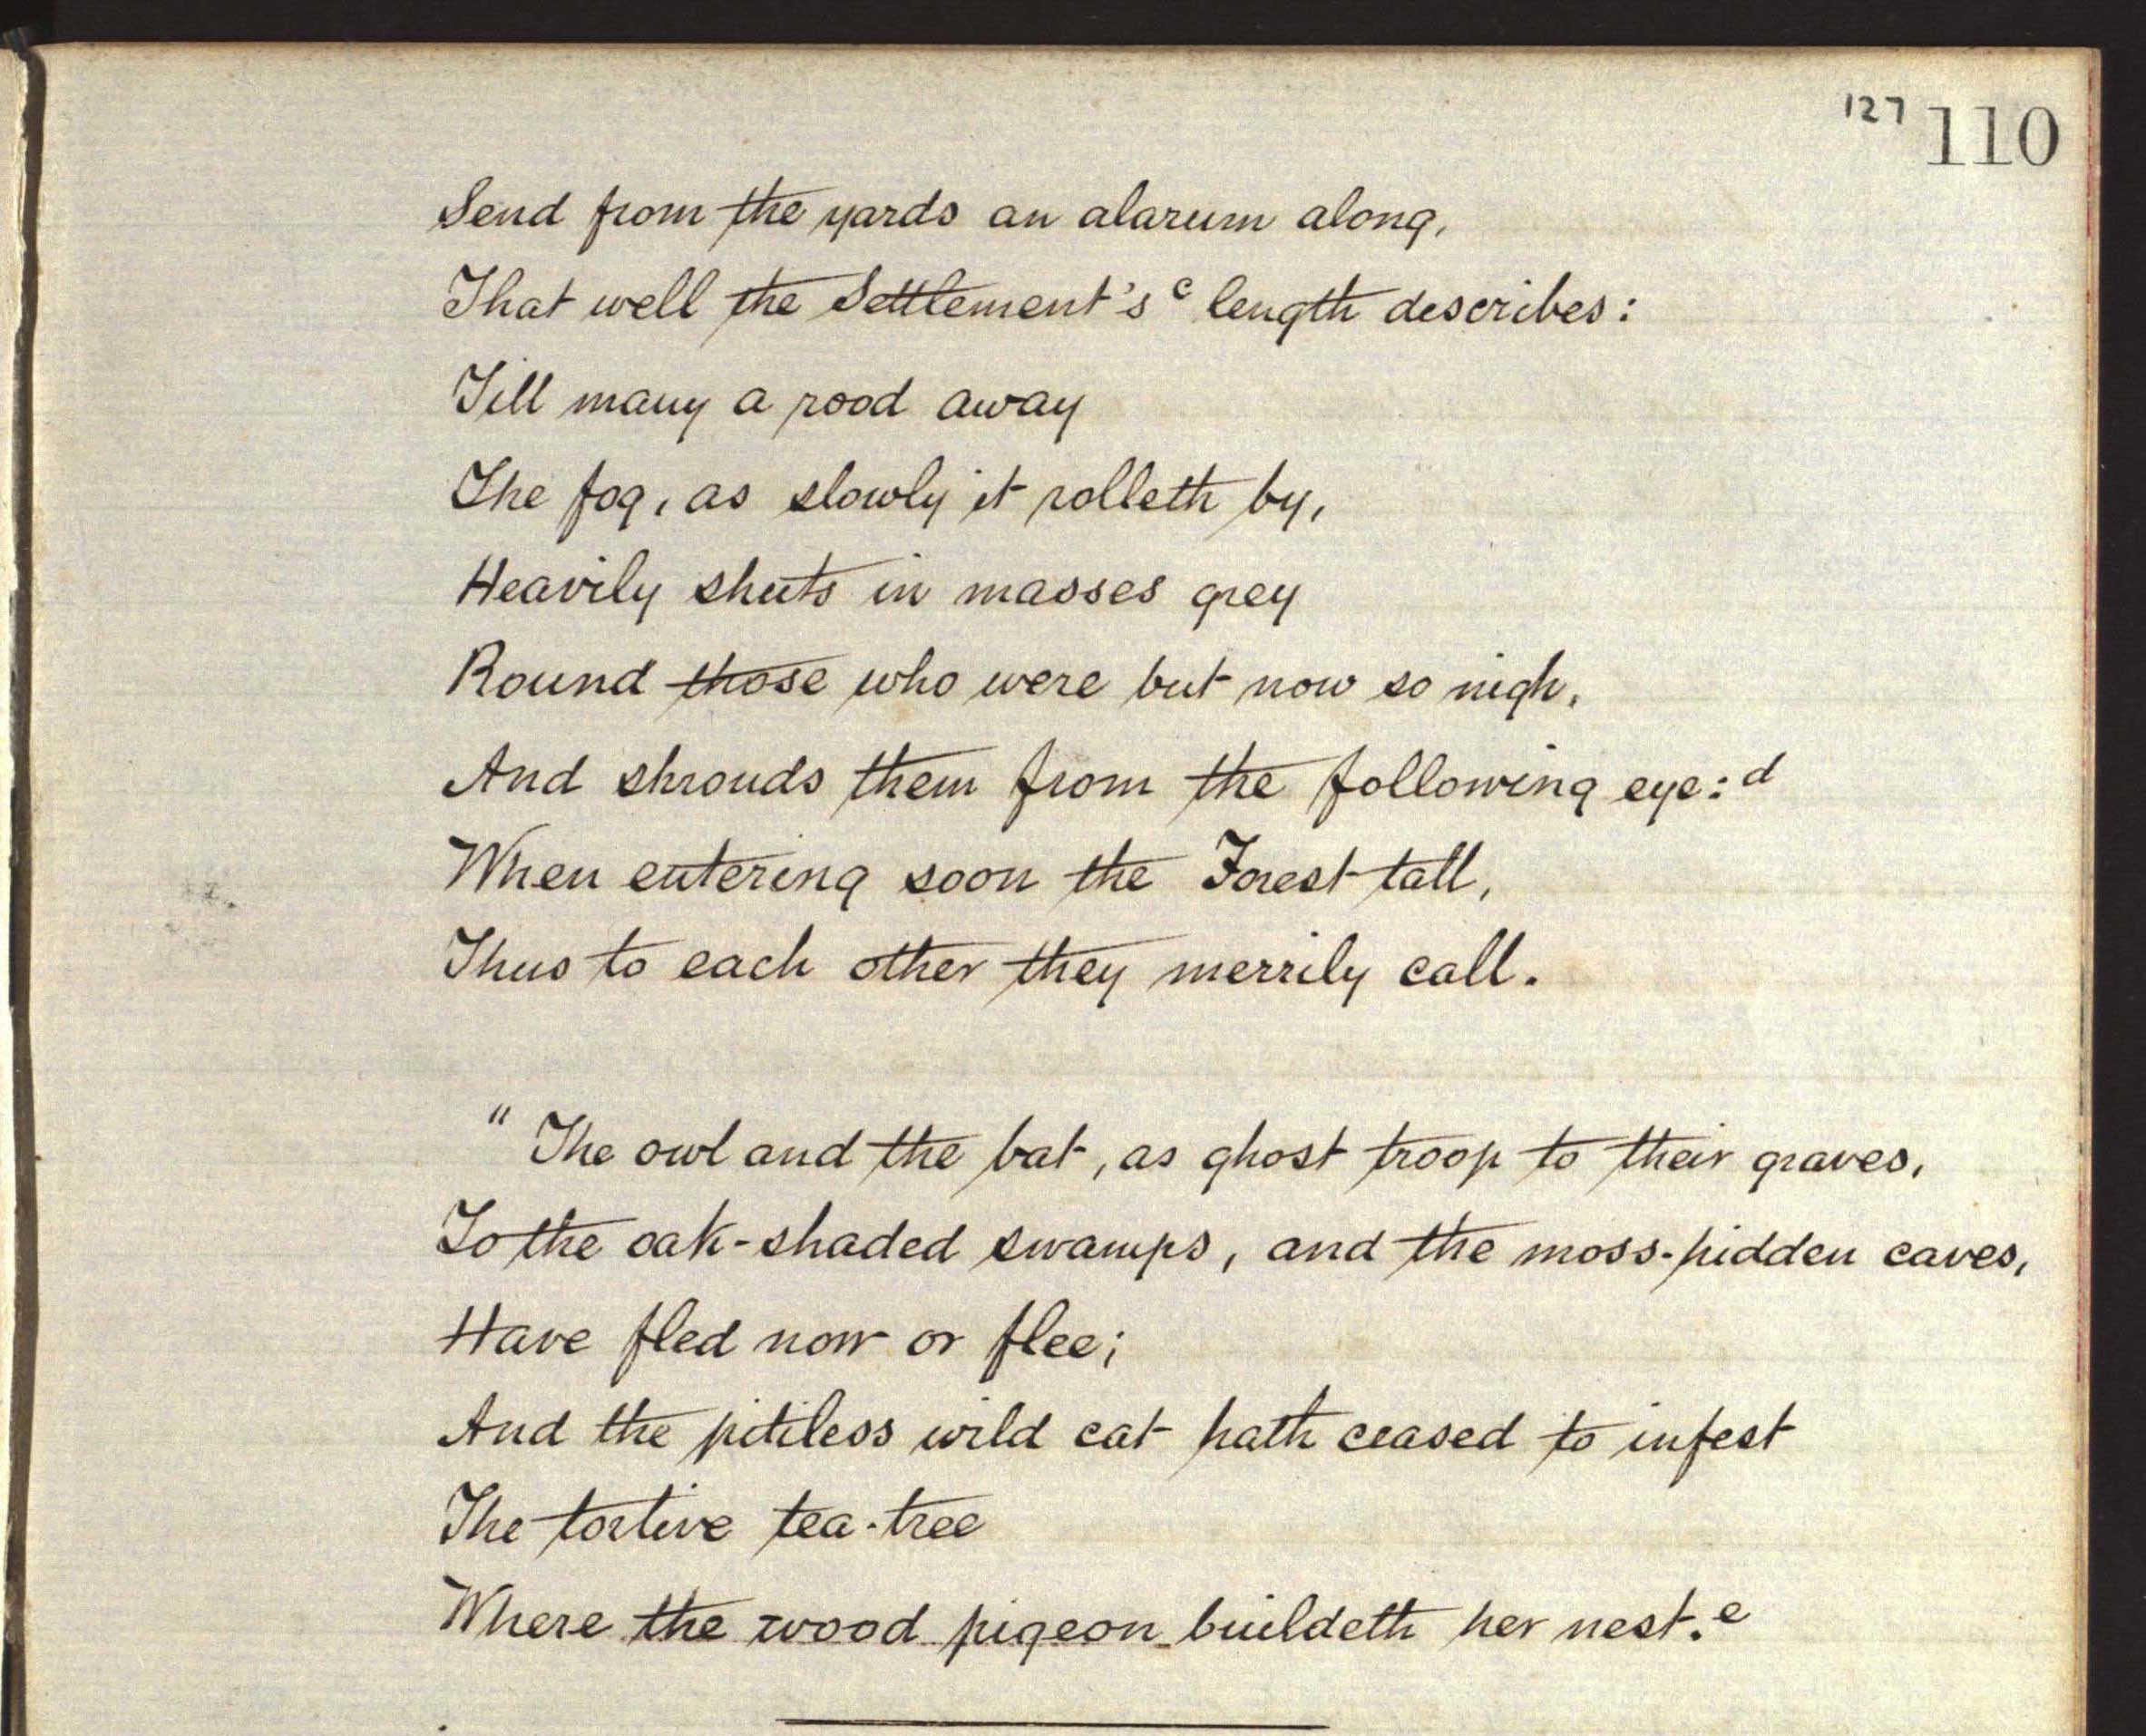 127 110
Send from the yards an alarum along,
That well the Settlement's ᶜ length describes:
Till many a rood away
The fog, as slowly it rolleth by,
Heavily shuts in masses grey
Round those who were but now so nigh,
And shrouds them from the following eye: ᵈ
When entering soon the Forest tall,
Thus to each other they merrily call.
" The owl and the bat, as ghost troop to their graves,
To the oak-shaded swamps, and the moss-hidden caves,
Have fled now or flee;
And the pitiless wild cat hath ceased to infest
The tortive tea-tree
Where the wood pigeon buildeth her nest. ᵉ